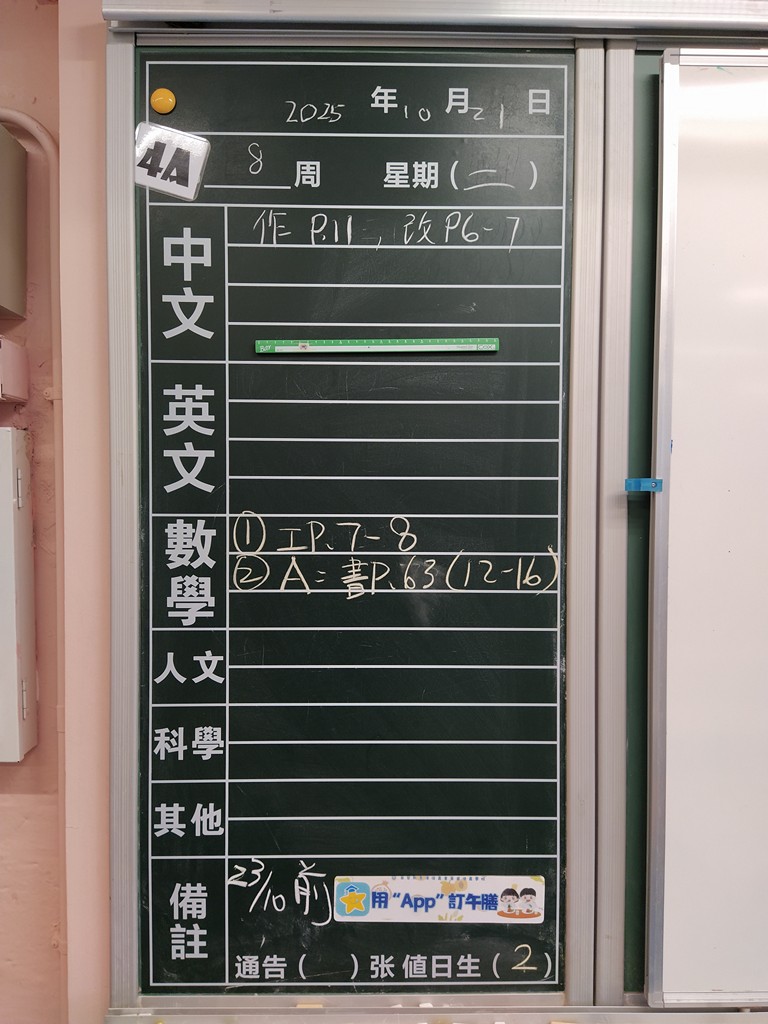 2025 年 10 月 21 日
4A
8 周 星期(二)
中文
作 P.11, 改P6-7
英文
數學
① 工P.7-8
② A: 書P.63(12-16)
人文
科學
其他
備註
23/10 前
用 “App” 訂午膳
通告( )张 值日生(2)